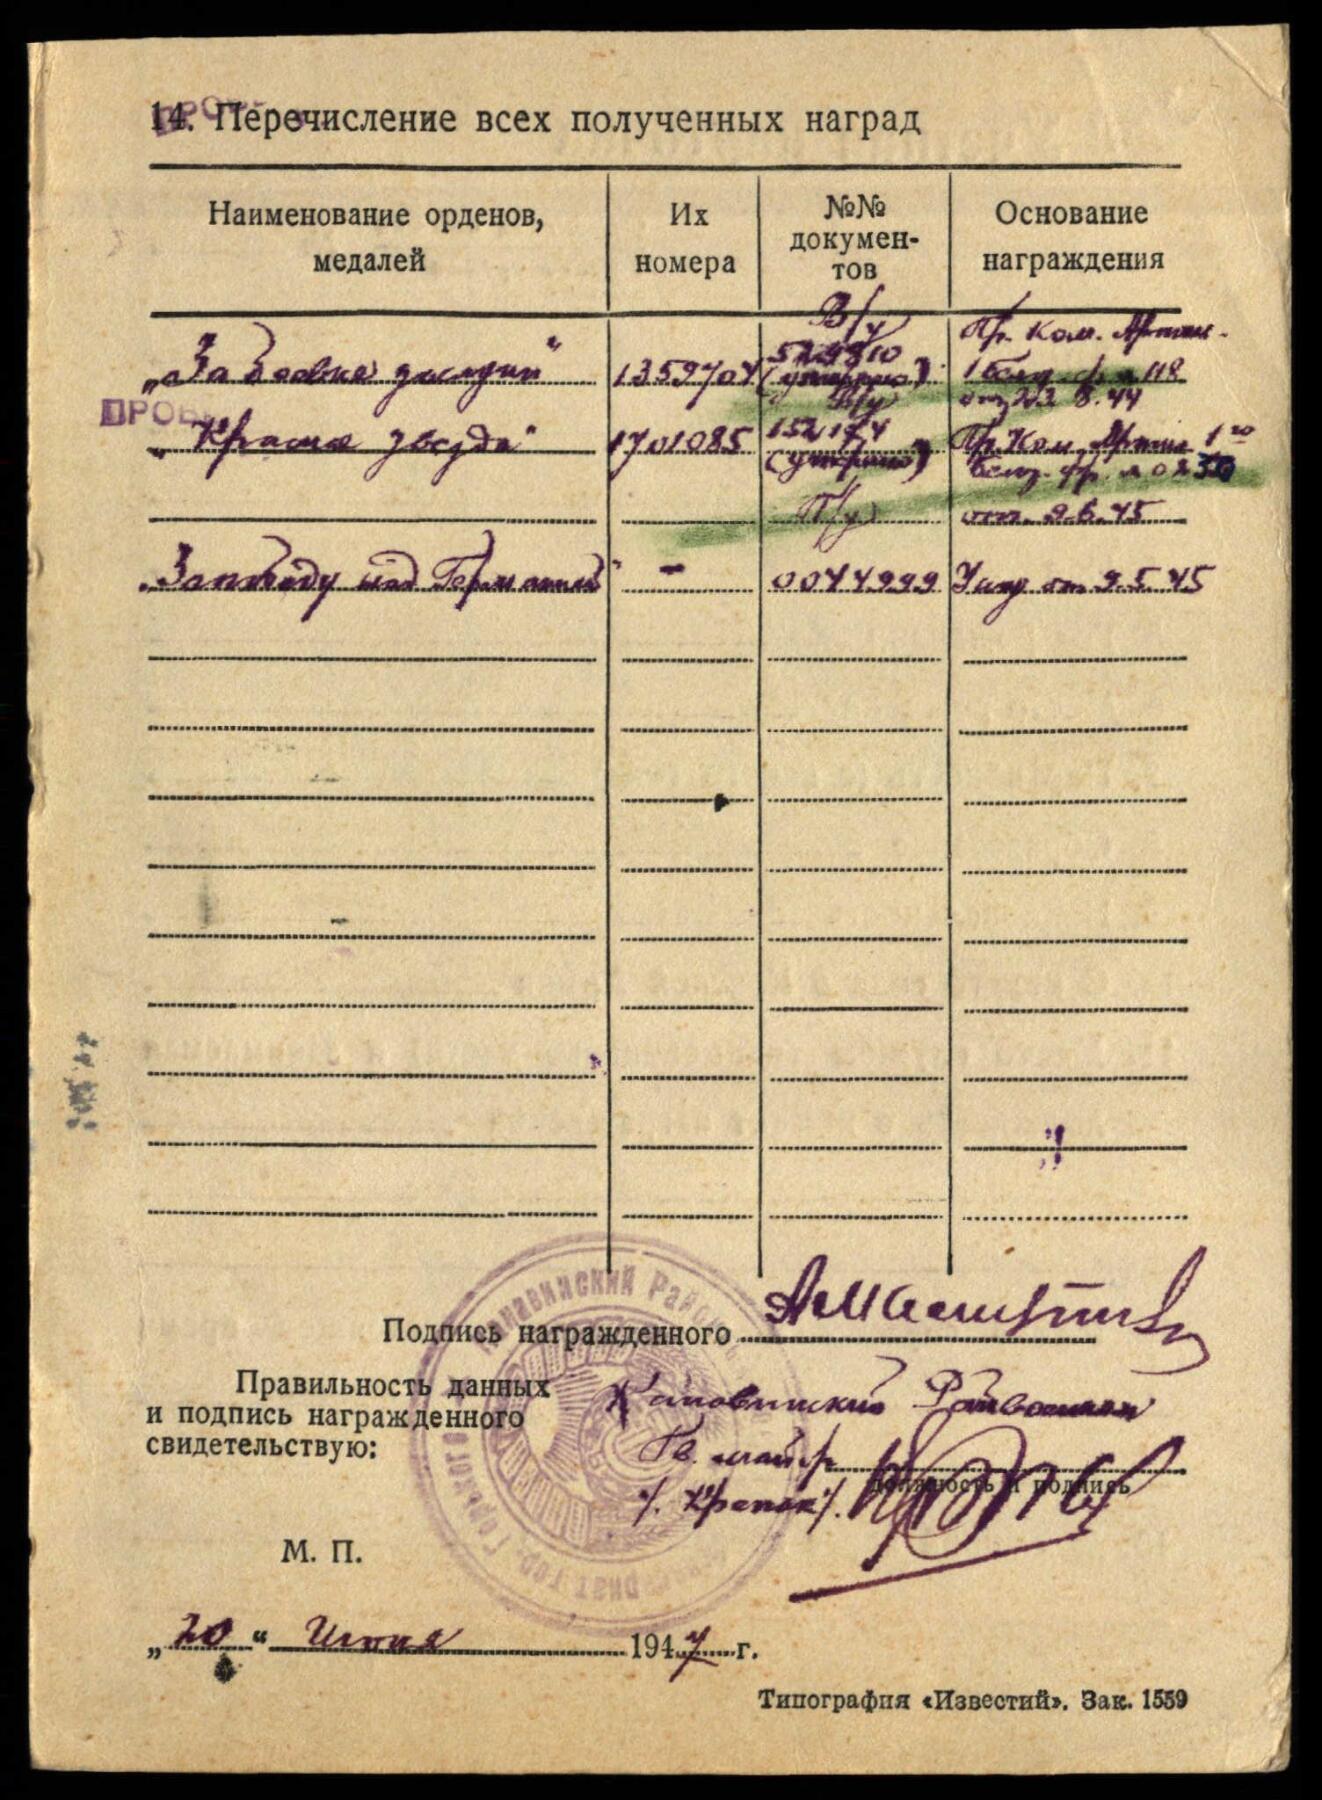 14. Перечисление всех полученных наград
Наименование орденов, медалей
Их номера
№№ документов
Основание награждения
„За боевые заслуги“ 1359704 В/у 529810 (утеряно) Пр. Ком. Артил. 1 Белор. фр. № 118 от 23.8.44
ПРОВ
„Красная звезда“ 1701085 В/у 152174 (утеряно) Пр. Ком. Артил. 1го Белор. фр. № 0230 от 9.6.45
П/у
„За победу над Германией“ - 0044999 Указ от 9.5.45
Подпись награжденного
Правильность данных
и подпись награжденного
свидетельствую:
Канавинский Райвоенком
Гв. майор
должность и подпись
/. Крепак/.
М. П.
„20“ Июня 1947 г.
Канавинский Райо
гор. Горького
Типография «Известий». Зак. 1559